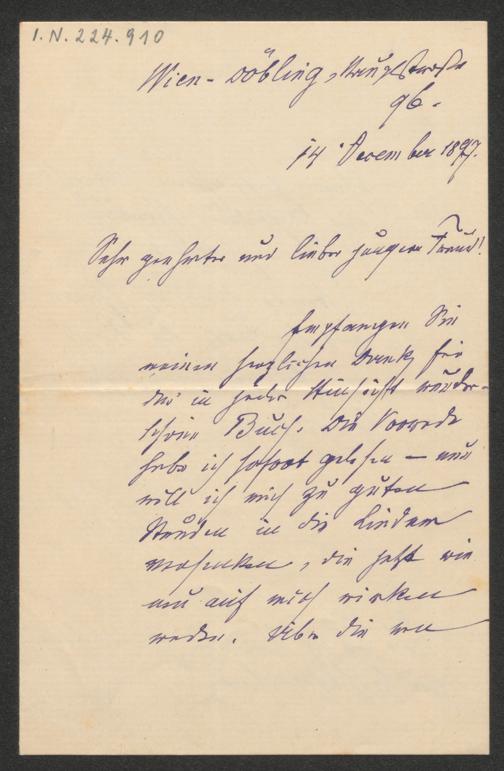 I.N. 224.910
Wien-Döbling, Hauptstraße
96.
14 December 1897.
Sehr geehrter und lieber junger Freund!
Empfangen Sie
meinen herzlichen Dank für
das in jeder Hinsicht wunder-
schöne Buch. Die Vorrede
habe ich sofort gelesen — nun
will ich mich zu guten
Stunden in die Lieder
versenken, die jetzt wie
neu auf mich wirken
werden. Über die von